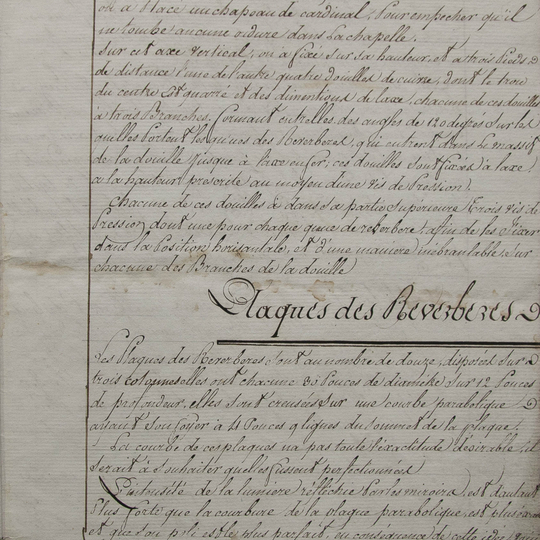 on a placé un chapeau de cardinal, pour empecher qu'il
ne tombe aucune ordure dans La chapelle.
Sur cet axe vertical, on a fixé sur sa hauteur, et a trois Pieds
de distance l'une de l'autre quatre douilles de cuivre, dont le trou
du centre Est quarré et des dimentions de l'axe, chacune de ces douilles
à trois Branches, formant entr'elles, des angles de 120 degrés sur les
quelles Portent les queues des Reverberes, qui entrent dans le massif
de la douille jusque à l'axe en fer; ces douilles sont fixées à l'axe,
a la hauteur prescrite au moyen d'une vis de Pression.
Chacune de ces douilles a dans sa partie Supérieure Trois vis de
Pression dont une pour chaque queue de reverbere, afin de les fixer
dans la Position horisontale, et d'une maniere inébranlable, sur
chacune des Branches de la douille
Plaques des Reverberes
Les Plaques des Reverberes sont au nombre de douze, disposées Sur
trois colonnes elles ont chacune 30 Pouces de diametre Sur 12 Pouces
de profondeur, elles sont creusées sur une courbe parabolique
ayant son foyer à 4 Pouces 9 lignes du sommet de la plaque,
La courbe de ces plaques n'a pas toute l'exactitude désirable, il
serait à souhaiter quelles fussent perfectionnées
L'intensité de la lumiere réfléchie Par les miroirs, est d'autant
Plus forte que la courbure de la plaque parabolique, est plus
et que son poli est le plus parfait, en conséquence de cette idée